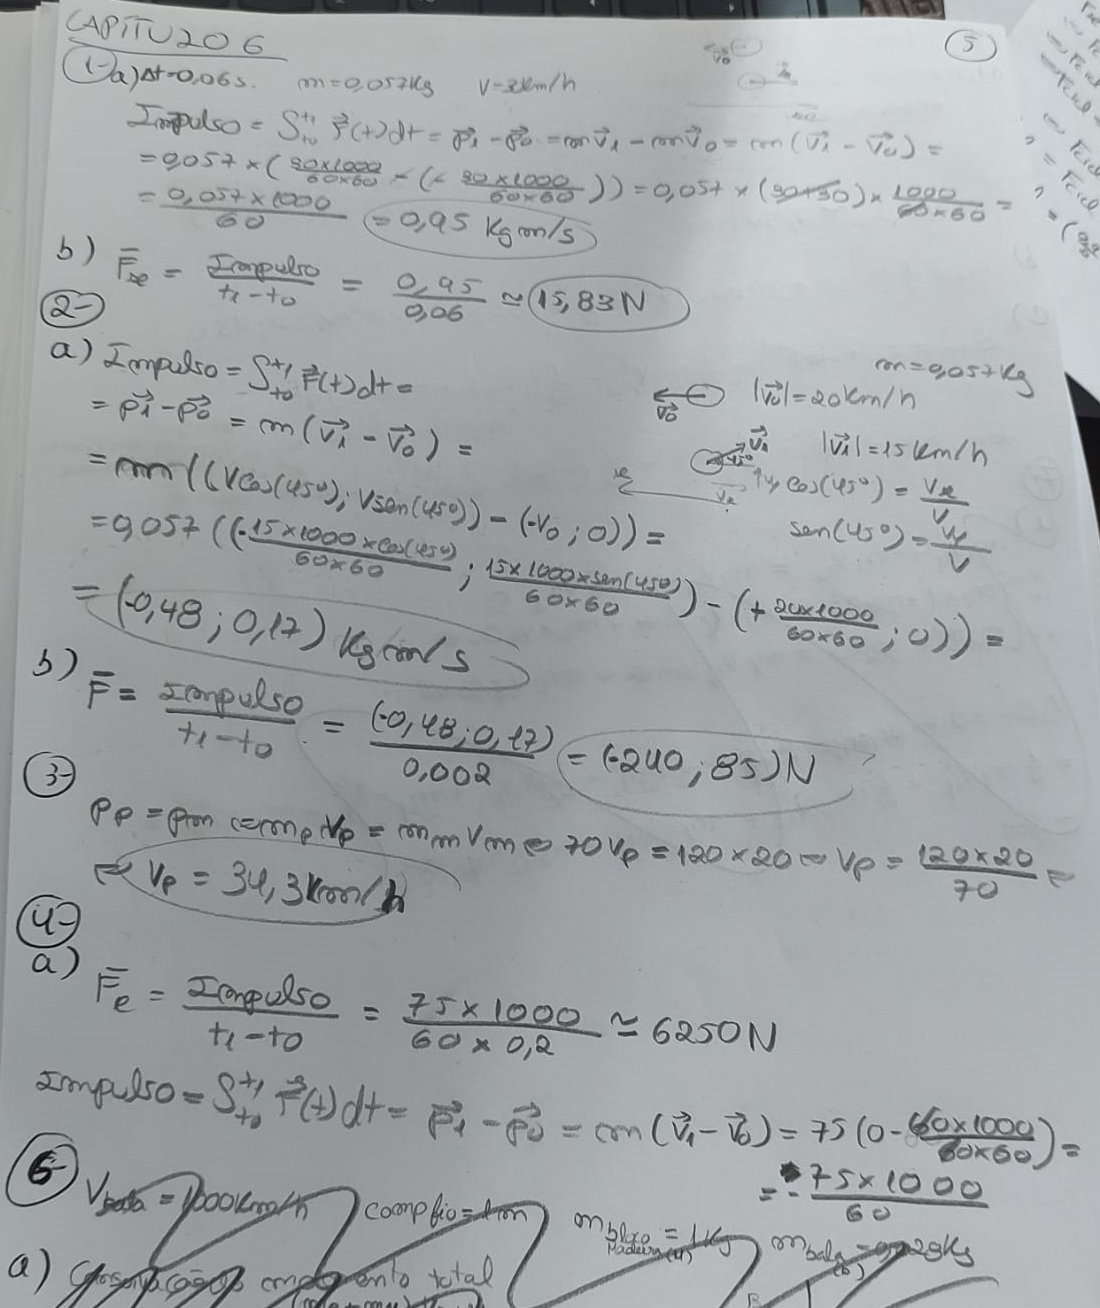 CAPÍTULO 6
5
1-a) Δt=0,06s. m=0,057Kg V=30km/h
Impulso = ∫t0t1 F⃗(t)dt = p⃗1 - p⃗0 = mv⃗1 - mv⃗0 = m(v⃗1 - v⃗0) =
= 0,057 × (30×1000/60×60 - (-30×1000/60×60)) = 0,057 × (30+30) × 1000/60×60 =
= 0,057×1000/60 = 0,95 Kgm/s
b) F̄x = Impulso/t1-t0 = 0,95/0,06 ≃ 15,83N
2-
a) Impulso = ∫t0t1 F⃗(t)dt = m=0,057Kg
= p⃗1 - p⃗0 = m(v⃗1 - v⃗0) = v⃗0 |v⃗0|=20km/h
v⃗1 45° |v⃗1|=15km/h
= m((Vcos(45°); Vsen(45°)) - (-V0; 0)) = cos(45°) = Vx/V
sen(45°) = Vy/V
= 0,057((-15×1000×cos(45°)/60×60; 15×1000×sen(45°)/60×60) - (+20×1000/60×60; 0)) =
= (-0,48; 0,17) Kgm/s
b) F̄ = Impulso/t1-t0 = (-0,48; 0,17)/0,002 = (-240; 85)N
3-
pp = pm ⇔ mpVp = mmVm ⇔ 70Vp = 120×20 ⇔ Vp = 120×20/70 ⇔
⇔ Vp = 34,3Km/h
4-
a)
F̄e = Impulso/t1-t0 = 75×1000/60×0,2 ≃ 6250N
Impulso = ∫t0t1 F⃗(t)dt = p⃗1 - p⃗0 = m(v⃗1 - v⃗0) = 75(0 - 60×1000/60×60) =
= - 75×1000/60
6- Vbala = 1000km/h comp fio = 1m mbloco Madeira (M) = 1Kg mbala (b) =
a) Conservação momento total